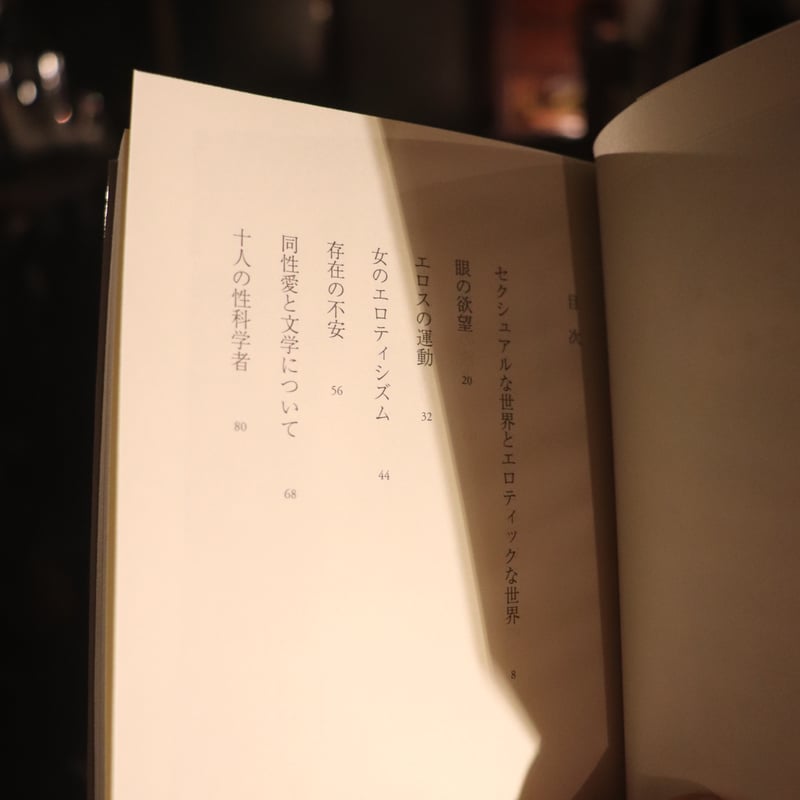 目次
セクシュアルな世界とエロティックな世界 8
眼の欲望 20
エロスの運動 32
女のエロティシズム 44
存在の不安 56
同性愛と文学について 68
十人の性科学者 80